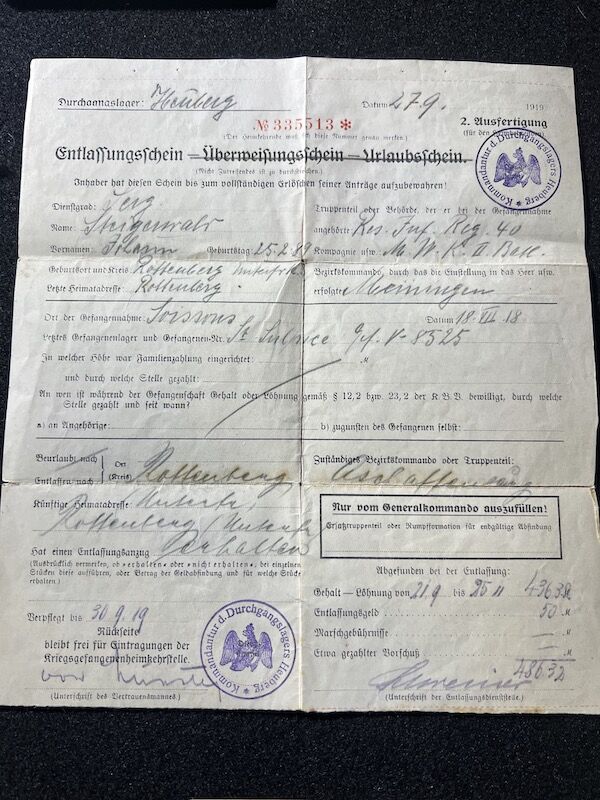 Durchgangslager: Heuberg Datum 27.9. 1919
№ 335513 *
2. Ausfertigung
(Der Heimkehrende muß sich diese Nummer genau merken.)
(für den
Entlassungsschein – Überweisungsschein – Urlaubsschein.
(Nicht Zutreffendes ist zu durchstreichen.)
Inhaber hat diesen Schein bis zum vollständigen Erlöschen seiner Anträge aufzubewahren!
Kommandantur d. Durchgangslagers Heuberg
Dienstgrad:
Name: Steigerwald
Vornamen: Johann Geburtstag: 25.2.89
Geburtsort und Kreis Rottenberg Unterfr.
Letzte Heimatadresse: Rottenberg.
Truppenteil oder Behörde, der er bei der Gefangennahme
angehörte Res. Inf. Reg. 40
Kompagnie usw. M.W.K. II. Batl.
Bezirkskommando, durch das die Einstellung in das Heer usw.
erfolgte: Meiningen
Ort der Gefangennahme: Soissons Datum 18.VII.18
Letztes Gefangenenlager und Gefangenen-Nr. St Sulpice V-8525
In welcher Höhe war Familienzahlung eingerichtet: "
und durch welche Stelle gezahlt:
An wen ist während der Gefangenschaft Gehalt oder Löhnung gemäß § 12,2 bzw. 23,2 der K.B.V. bewilligt, durch welche
Stelle gezahlt und seit wann?
a) an Angehörige: b) zugunsten des Gefangenen selbst:
Beurlaubt nach
Entlassen nach
Ort
(Kreis)
Rottenberg
Zuständiges Bezirkskommando oder Truppenteil:
Aschaffenburg
Künftige Heimatadresse: Unterfr.
Rottenberg (Unterfr.
Hat einen Entlassungsanzug erhalten
(Ausdrücklich vermerken, ob »erhalten« oder »nicht erhalten«, bei einzelnen
Stücken diese aufführen, oder Betrag der Geldabfindung und für welche Stücke
erhalten.)
Nur vom Generalkommando auszufüllen!
Ersatztruppenteil oder Rumpfformation für endgültige Abfindung
Abgefunden bei der Entlassung:
Gehalt – Löhnung von 21.9 bis 25.11 436.32
Entlassungsgeld 50 "
Marschgebührnisse — "
Etwa gezahlter Vorschuß — "
486.32
Verpflegt bis 30.9.19
Rückseite
bleibt frei für Eintragungen der
Kriegsgefangenenheimkehrstelle.
Kommandantur d. Durchgangslagers Heuberg
(Unterschrift des Vertrauensmannes.)
(Unterschrift der Entlassungsdienststelle.)